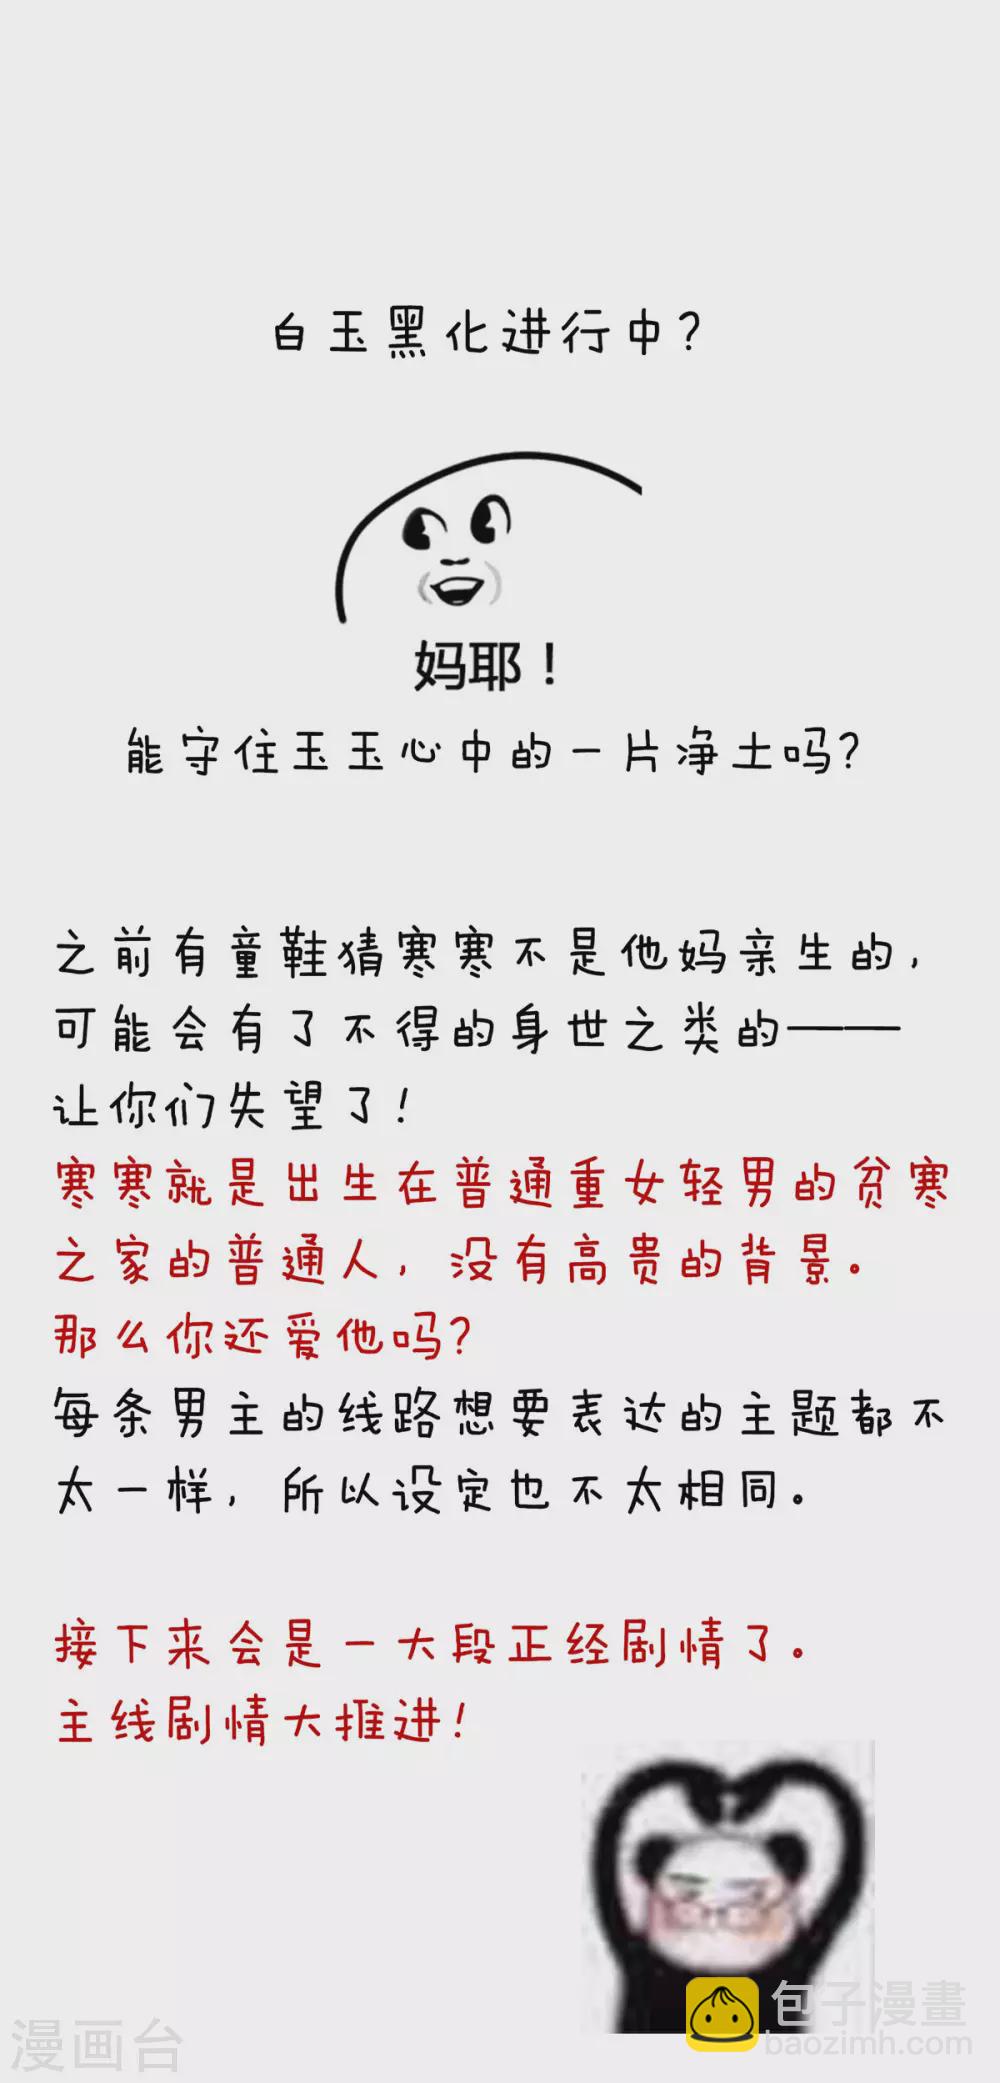 白玉黑化进行中?
妈耶！
能守住玉玉心中的一片净土吗?
之前有童鞋猜寒寒不是他妈亲生的,
可能会有了不得的身世之类的——
让你们失望了!
寒寒就是出生在普通重女轻男的贫寒
之家的普通人, 没有高贵的背景。
那么你还爱他吗?
每条男主的线路想要表达的主题都不
太一样, 所以设定也不太相同。
接下来会是一大段正经剧情了。
主线剧情大推进!
包子漫畫
baozimh.com
漫画台